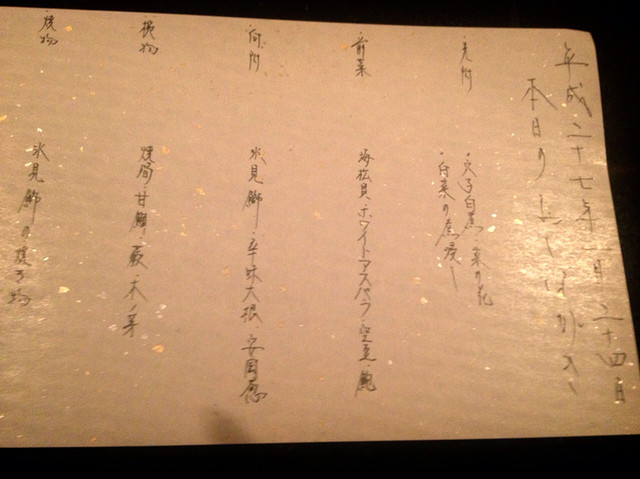 平成二十七年一月二十四日
本日のおしながき
先附
穴子白煮・菜の花
白菜の煮浸し
前菜
海松貝・ホワイトアスパラ・空豆・鮑
向附
氷見鰤・辛味大根・安岡葱
椀物
焼目甘鯛・蕨・木ノ芽
焼物
氷見鰤の